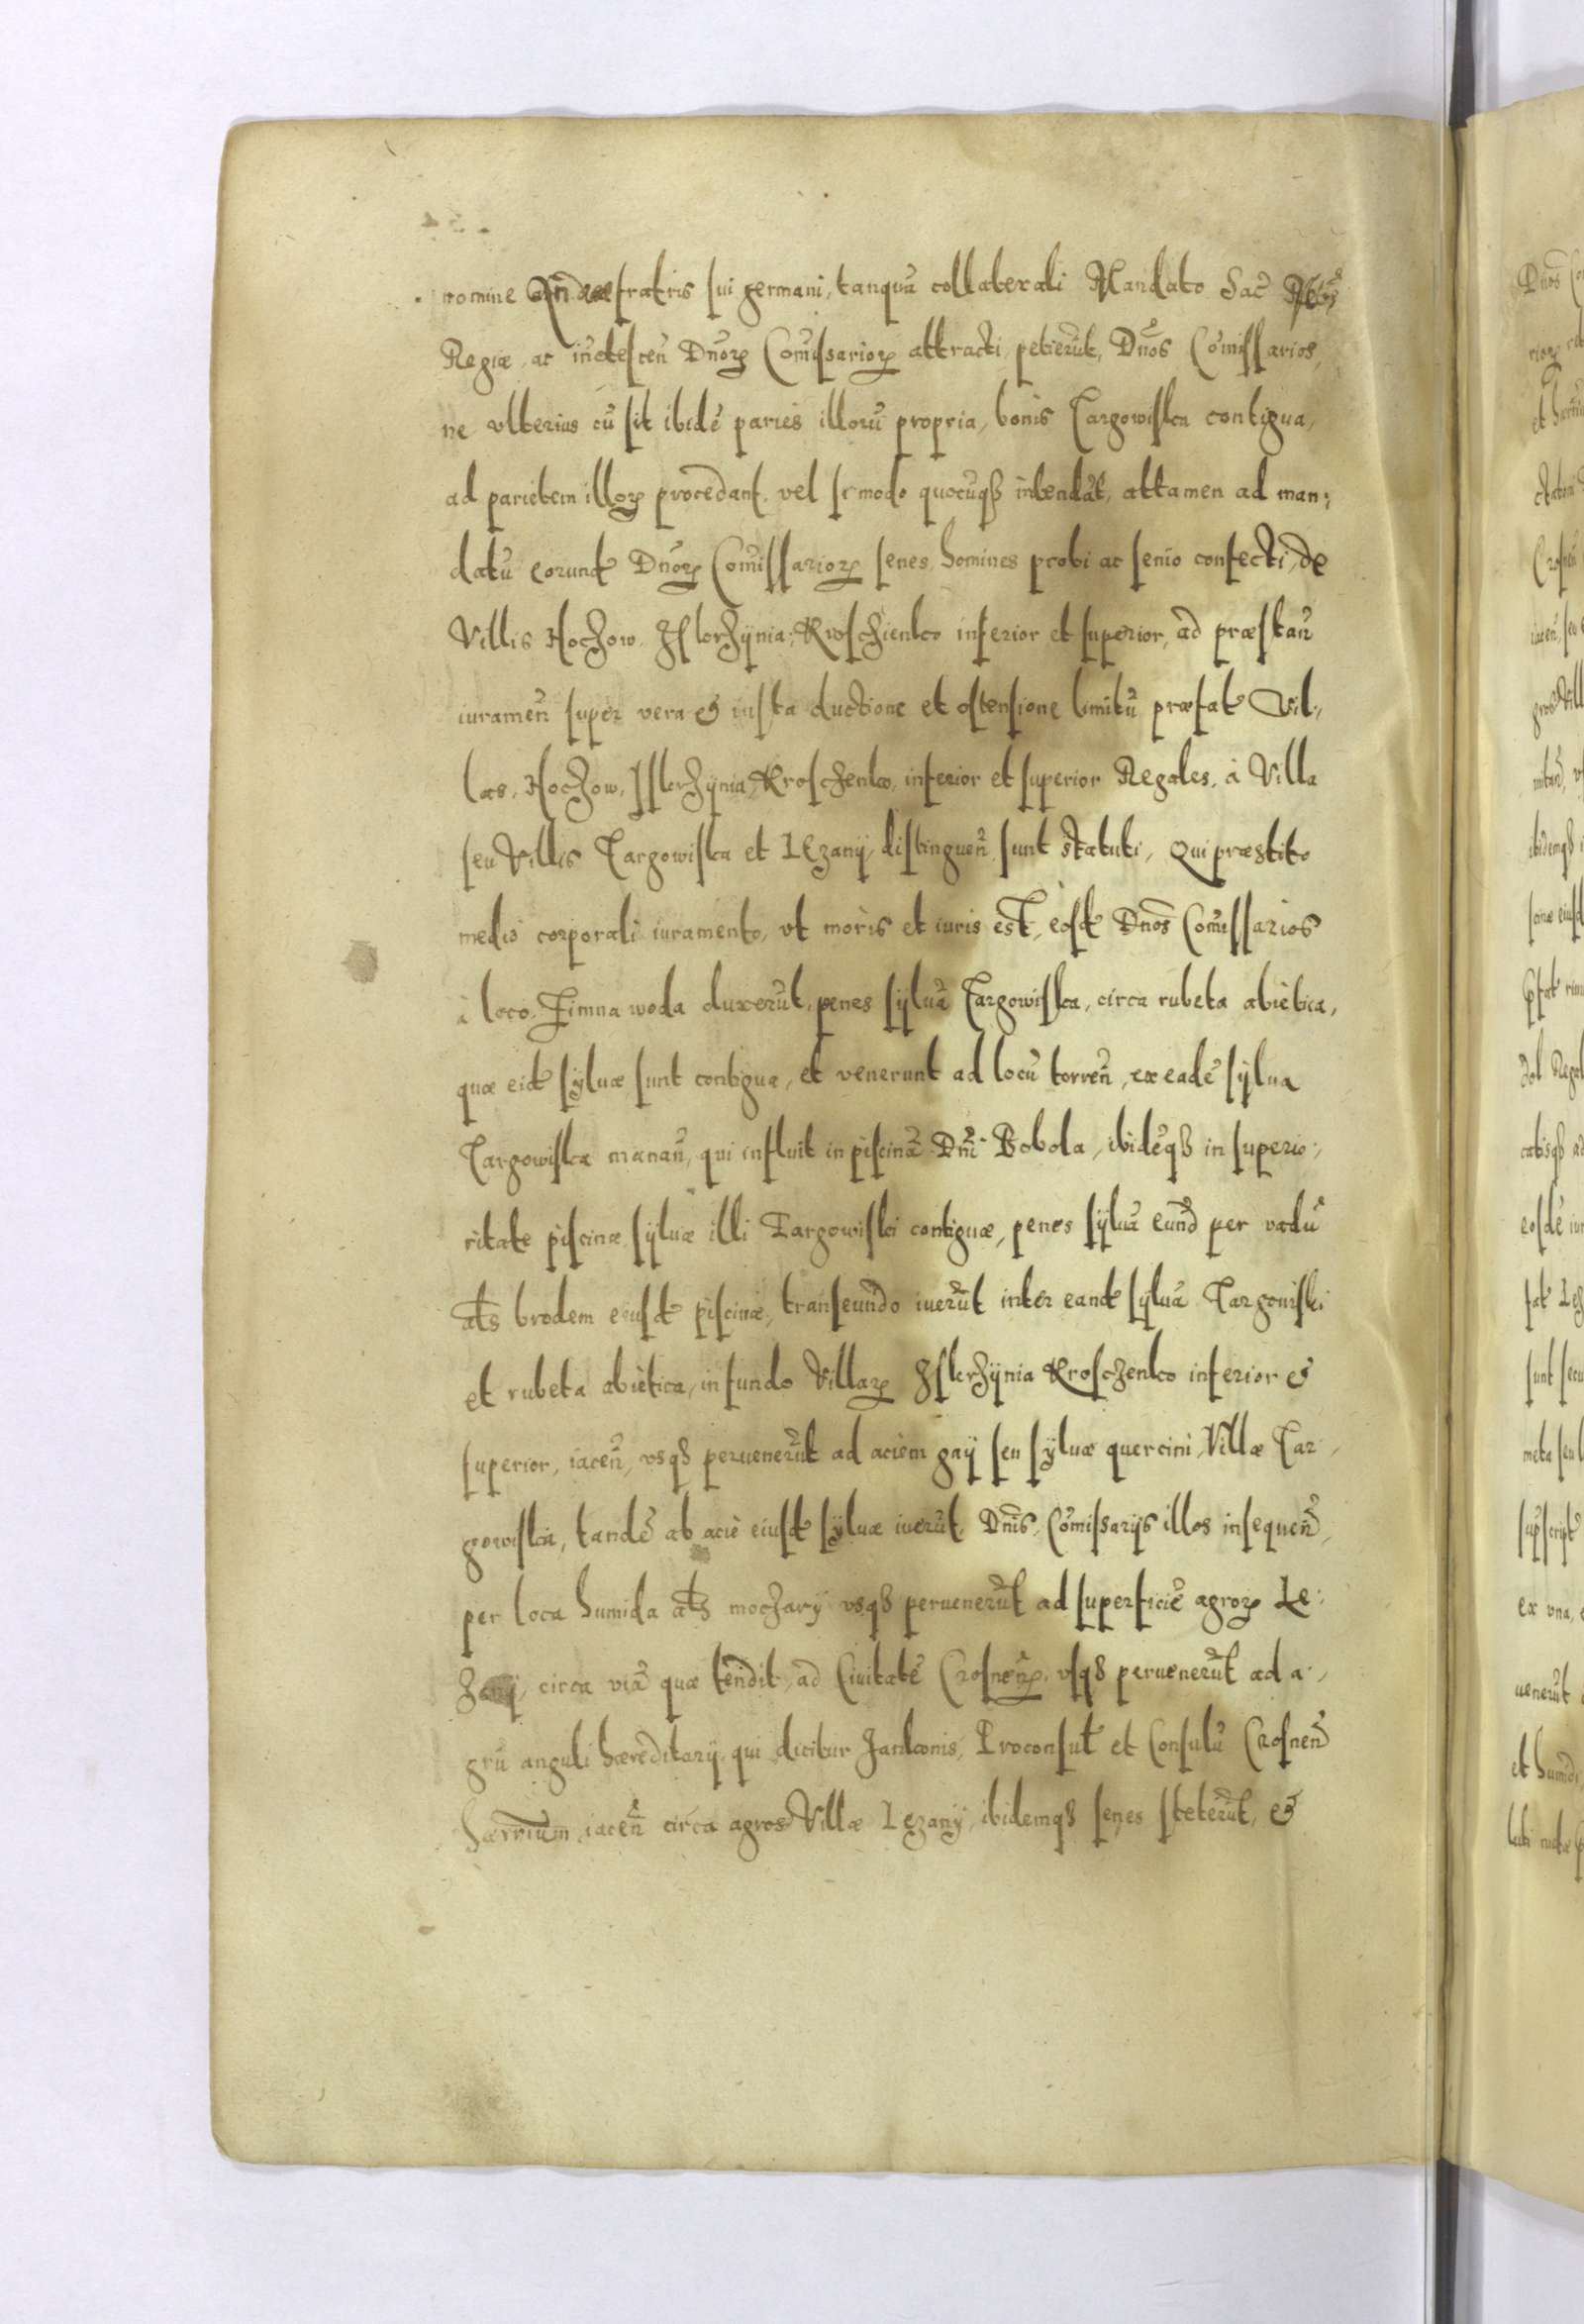 nomine fratris sui germani, tanquā collaterali Mandato Sac̄
Regiæ, ac Dn̄oꝝ Com̄issarioꝝ attracti, petierūt, Dn̄os Com̄issarios,
ne vlterius cū sit ibidē paries illorū propria, bonis Targowiska contigua,
ad parietem illoꝝ procedant, vel modo quocūqꝫ intendāt, attamen ad man:
datū eorund Dn̄oꝝ Com̄issarioꝝ senes, homines probi ac senio confecti, de
Villis Hoczow, Iskrzÿnia, Krosczienko inferior et superior, ad præstan̄
iuramen̄ super vera & iusta ductione et ostensione limitū præfat Vil:
las, Hoczow, Iskrzÿnia, Kroschenko, inferior et superior Regales, à Villa
seu Villis Targowiska et Lezanÿ, distinguen̄ sunt statuti, Qui præstito
medio corporali iuramento, vt moris et iuris est, eosd Dn̄os Com̄issarios
à loco Zimna woda duxerūt, penes sÿluā Targowiska, circa rubeta abietica,
quæ eid sÿluæ sunt contigua, et venerunt ad locū torren̄, ex eadē sÿlua
Targowiska manan̄, qui influit in piscinā Dn̄i Bobola, ibidēqꝫ in superio:
ritate piscinæ sÿluæ illi Targowiski contiguæ, penes sÿluā eund per vadū
als brodem eiusd piscinæ, transeundo iuerūt inter eand sÿluā Targowiski
et rubeta abietica, in fundo Villaꝝ Iskrzÿnia Kroschenko inferior &
superior, iacen̄, vsqꝫ peruenerūt ad aciem gaÿ seu sÿluæ quercini Villæ Tar:
gowiska, tandē ab acie eiusd sÿluæ iuerūt, Dn̄is Com̄issarijs illos insequen̄,
per loca humida als moczarÿ vsqꝫ peruenerūt ad superficiē agroꝝ Le:
zanÿ, circa viā quæ tendit ad Ciuitatē Crosnen̄, vsqꝫ peruenerūt ad a:
grū anguli hæreditarij, qui dicitur Jankonis, Proconsul et Consulū Crosnen̄
iacen̄ circa agros Villæ Lezanÿ, ibidemqꝫ senes steterūt, &